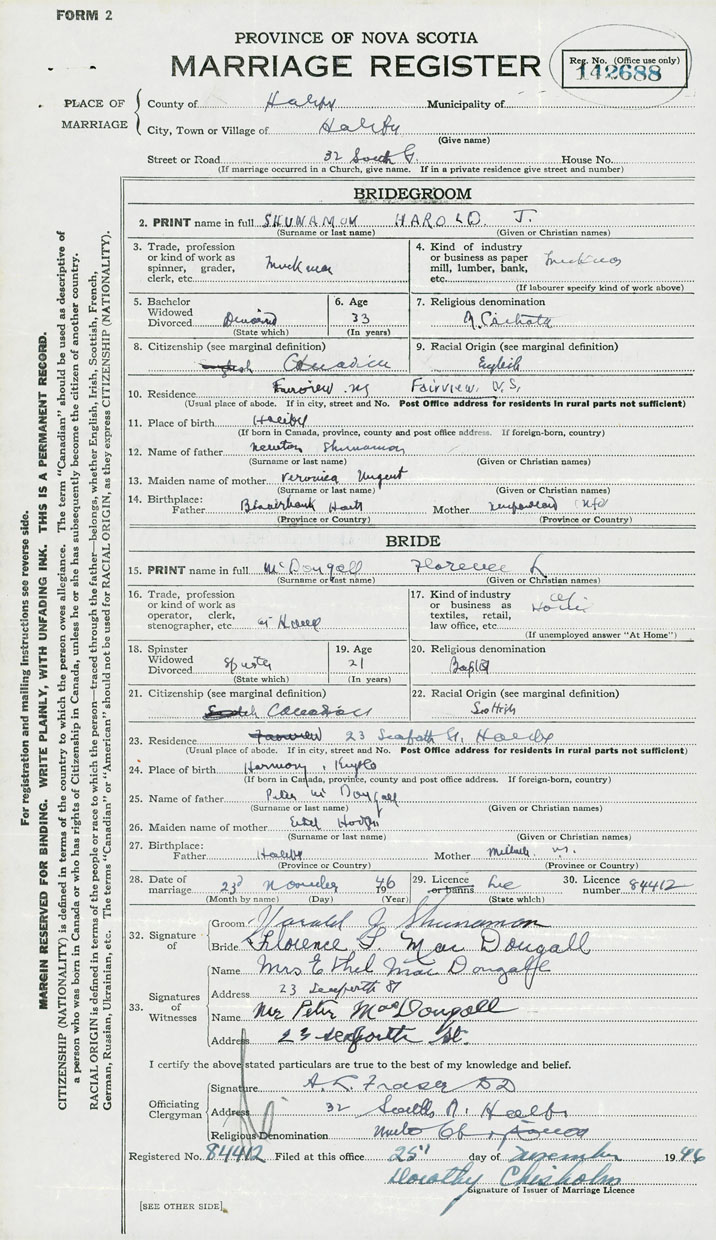 FORM 2
PROVINCE OF NOVA SCOTIA
MARRIAGE REGISTER
Reg. No. (Office use only)
142688
PLACE OF MARRIAGE
County of Halifx Municipality of
City, Town or Village of Halifx
(Give name)
Street or Road 32 South House No.
(If marriage occurred in a Church, give name. If in a private residence give street and number)
BRIDEGROOM
2. PRINT name in full SHUNAMON HAROLD. J.
(Surname or last name) (Given or Christian names)
3. Trade, profession or kind of work as spinner, grader, clerk, etc.
4. Kind of industry or business as paper mill, lumber, bank, etc.
(If labourer specify kind of work above)
5. Bachelor Widowed Divorced Divorced
(State which)
6. Age 33
(In years)
7. Religious denomination
8. Citizenship (see marginal definition) English Canadian
9. Racial Origin (see marginal definition) English
10. Residence Fairview NS Fairview, N.S,
(Usual place of abode. If in city, street and No. Post Office address for residents in rural parts not sufficient)
11. Place of birth Halifx
(If born in Canada, province, county and post office address. If foreign-born, country)
12. Name of father Newton Shunamon
(Surname or last name) (Given or Christian names)
13. Maiden name of mother Veronica
(Surname or last name) (Given or Christian names)
14. Birthplace: Father Hants Mother Nfd
(Province or Country) (Province or Country)
BRIDE
15. PRINT name in full McDougall Florence L
(Surname or last name) (Given or Christian names)
16. Trade, profession or kind of work as operator, clerk, stenographer, etc. at Home
17. Kind of industry or business as textiles, retail, law office, etc. at Home
(If unemployed answer "At Home")
18. Spinster Widowed Divorced Spinster
(State which)
19. Age 21
(In years)
20. Religious denomination Baptist
21. Citizenship (see marginal definition) Scotch Canadian
22. Racial Origin (see marginal definition) Scottish
23. Residence Fairview 23 Seaforth St, Halifx
(Usual place of abode. If in city, street and No. Post Office address for residents in rural parts not sufficient)
24. Place of birth Harmony,
(If born in Canada, province, county and post office address. If foreign-born, country)
25. Name of father Peter Mc Dougall
(Surname or last name) (Given or Christian names)
26. Maiden name of mother Ethel
(Surname or last name) (Given or Christian names)
27. Birthplace: Father Halifx Mother
(Province or Country) (Province or Country)
28. Date of marriage 23d November 1946
(Month by name) (Day) (Year)
29. Licence or banns Lic
(State which)
30. Licence number 84412
32. Signature of
Groom Harold J Shunamon
Bride Florence L. Mac Dougall
33. Signatures of Witnesses
Name Mrs Ethel Mac Dougall
Address 23 Seaforth St
Name Mr Peter MacDougall
Address 23 Seaforth St.
I certify the above stated particulars are true to the best of my knowledge and belief.
Officiating Clergyman
Signature A. L. Fraser DD
Address 32 South Halifx
Religious Denomination
Registered No. 84412 Filed at this office 25" day of November 1946
Dorothy Chisholm
Signature of Issuer of Marriage Licence
[SEE OTHER SIDE]
For registration and mailing instructions see reverse side.
MARGIN RESERVED FOR BINDING. WRITE PLAINLY, WITH UNFADING INK. THIS IS A PERMANENT RECORD.
CITIZENSHIP (NATIONALITY) is defined in terms of the country to which the person owes allegiance. The term "Canadian" should be used as descriptive of
a person who was born in Canada or who has rights of Citizenship in Canada, unless he or she has subsequently become the citizen of another country.
RACIAL ORIGIN is defined in terms of the people or race to which the person—traced through the father—belongs, whether English, Irish, Scottish, French,
German, Russian, Ukrainian, etc. The terms "Canadian" or "American" should not be used for RACIAL ORIGIN, as they express CITIZENSHIP (NATIONALITY).